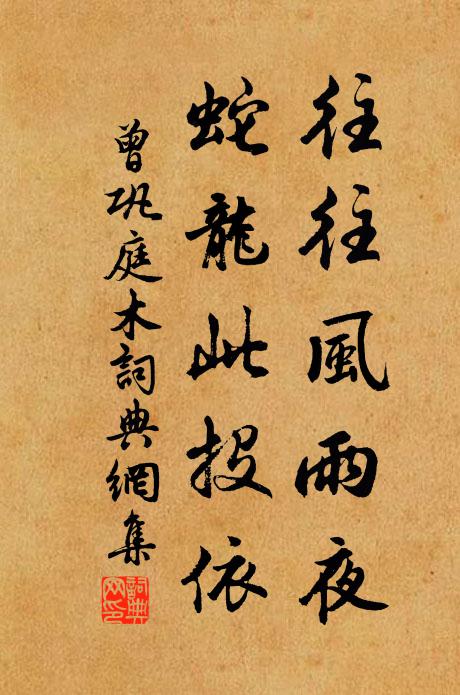 往往風雨夜
蛇龍此投依
曾巩庭木詞典網集
詞典
网印